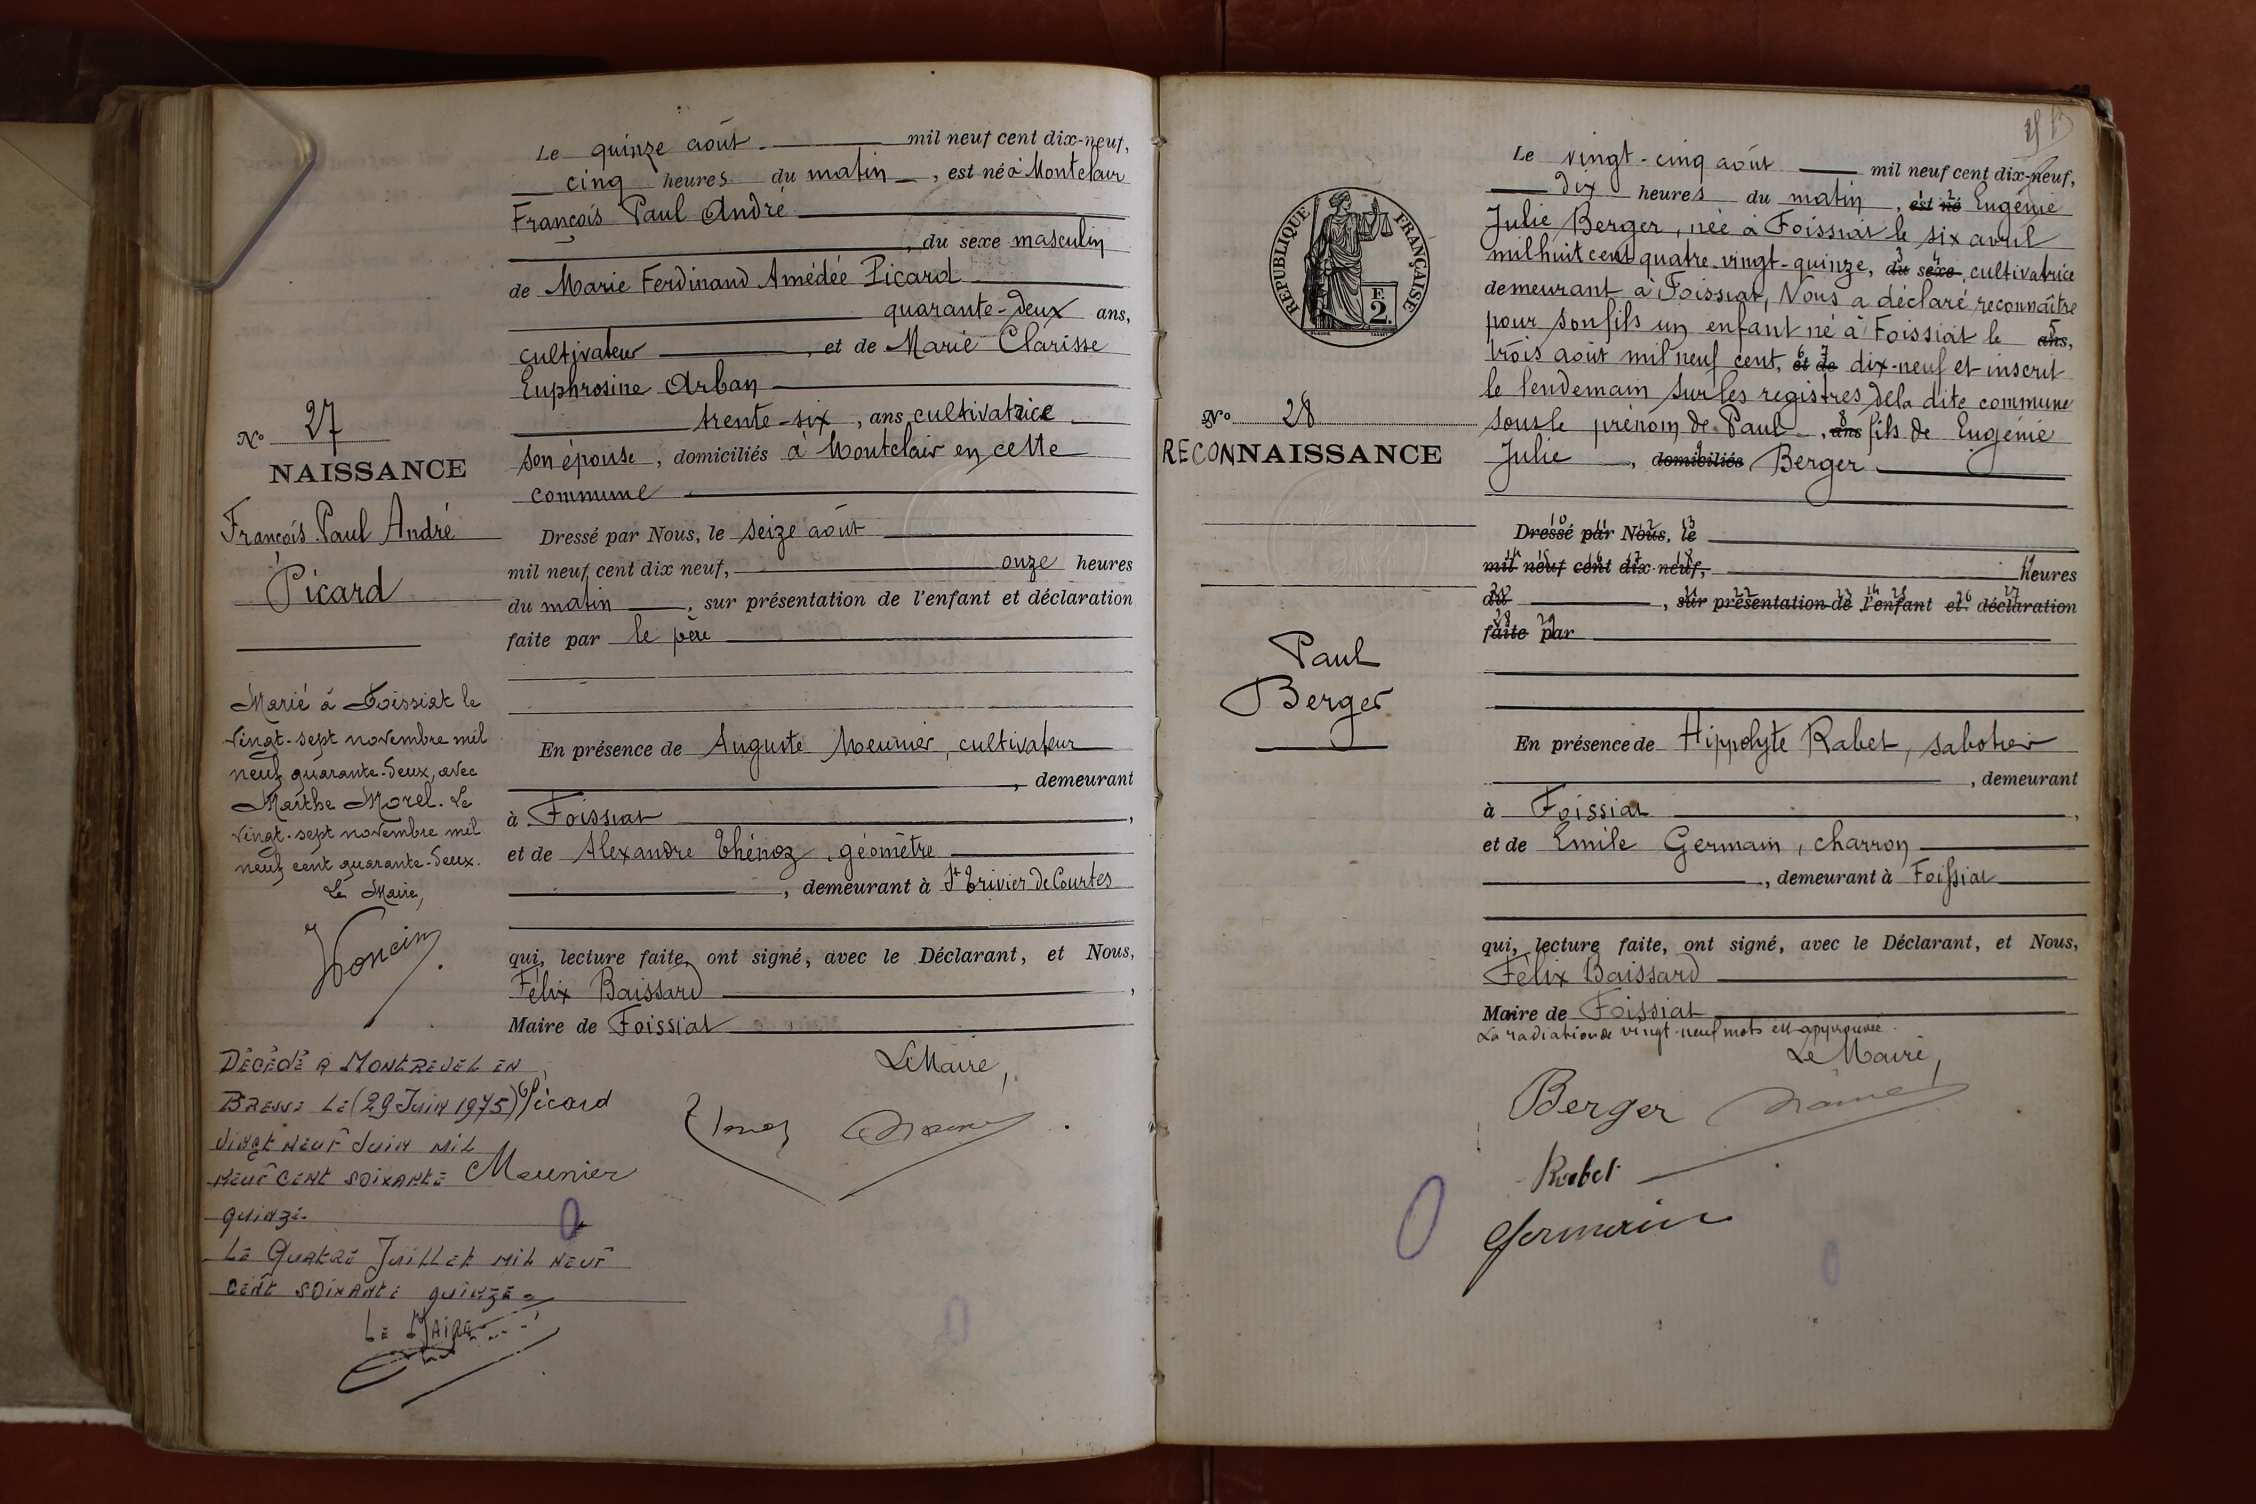 Le quinze août mil neuf cent dix-neuf,
cinq heures du matin, est né à Montclair
François Paul André
, du sexe masculin
de Marie Ferdinand Amédée Picard
quarante-deux ans,
cultivateur, et de Marie Clarisse
Euphrosine Arban
trente-six, ans cultivatrice
son épouse, domiciliés à Montclair en cette
commune
No 27
NAISSANCE
François Paul André
Picard
Dressé par Nous, le seize août
mil neuf cent dix neuf, onze heures
du matin, sur présentation de l'enfant et déclaration
faite par le père
Marié à Foissiat le
vingt-sept novembre mil
neuf quarante-deux, avec
Marthe Morel. Le
vingt-sept novembre mil
neuf cent quarante-deux.
Le Maire,
En présence de Auguste Meunier, cultivateur
, demeurant
à Foissiat,
et de Alexandre Thénoz, géomètre
, demeurant à St Trivier de Courtes
qui, lecture faite, ont signé, avec le Déclarant, et Nous,
Félix Baissard,
Maire de Foissiat
Le Maire,
Picard
Meunier
DÉCÉDÉ A MONTREVEL EN
BRESSE LE (29 JUIN 1975)
VINGT NEUF JUIN MIL
NEUF CENT SOIXANTE
QUINZE.
LE QUATRE JUILLET MIL NEUF
CENT SOIXANTE QUINZE
LE MAIRE
RÉPUBLIQUE FRANÇAISE
F.
2.
No 28
RECONNAISSANCE
Paul
Berger
Le vingt-cinq août mil neuf cent dix-neuf,
dix heures du matin, est né Eugénie
Julie Berger, née à Foissiat le six avril
mil huit cent quatre-vingt-quinze, du sexe cultivatrice
demeurant à Foissiat, Nous a déclaré reconnaître
pour son fils un enfant né à Foissiat le ans,
trois août mil neuf cent, et de dix-neuf et inscrit
le lendemain sur les registres de la dite commune
sous le prénom de Paul, ans fils de Eugénie
Julie, domiciliés Berger
Dressé par Nous, le
mil neuf cent dix-neuf, heures
du, sur présentation de l'enfant et déclaration
faite par
En présence de Hippolyte Rabet, sabotier
, demeurant
à Foissiat,
et de Emile Germain, charron
, demeurant à Foissiat
qui, lecture faite, ont signé, avec le Déclarant, et Nous,
Félix Baissard
Maire de Foissiat
La radiation de vingt-neuf mots est approuvée.
Le Maire,
Berger
Rabet
Germain